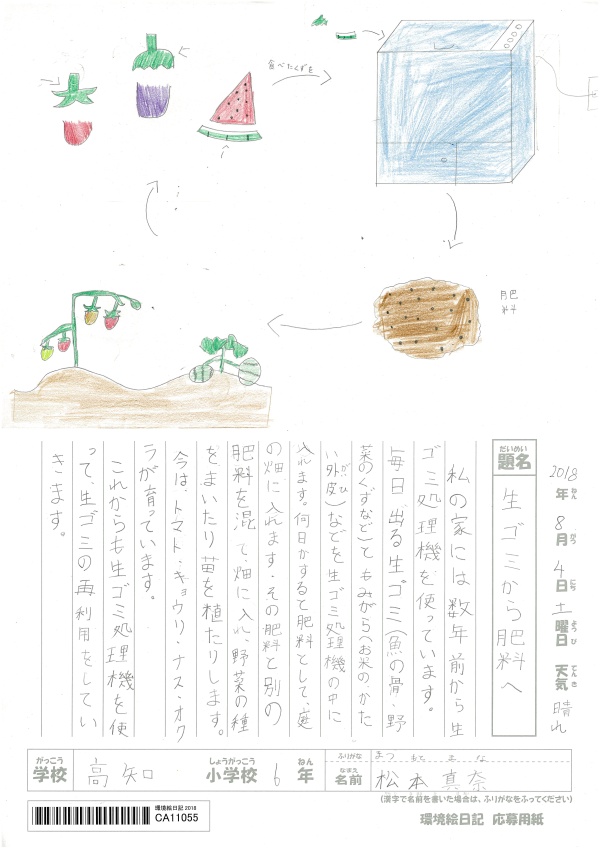 食べたくずを
肥料
2018年ねん8月がつ4日にち土曜日ようび 天気てんき 晴れ
題名だいめい 生ゴミから肥料へ
私の家には数年前から生
ゴミ処理機を使っています。
毎日、出る生ゴミ(魚の骨・野
菜のくずなど)ともみがら(お米の、かた
い外皮がいひ)などを生ゴミ処理機の中に
入れます。何日かすると肥料として、庭
の畑に入れます。その肥料と別の
肥料を混て、畑に入れ、野菜の種
をまいたり苗を植たりします。
今は、トマト・キュウリ・ナス・オク
ラが育っています。
これからも生ゴミ処理機を使
って、生ゴミの再利用をしてい
きます。
学校がっこう 高知 小学校しょうがっこう 6年ねん
ふりがな まつ もと ま な
名前なまえ 松本真奈
(漢字で名前を書いた場合は、ふりがなをふってください)
環境絵日記 2018
CA11055
環境絵日記 応募用紙